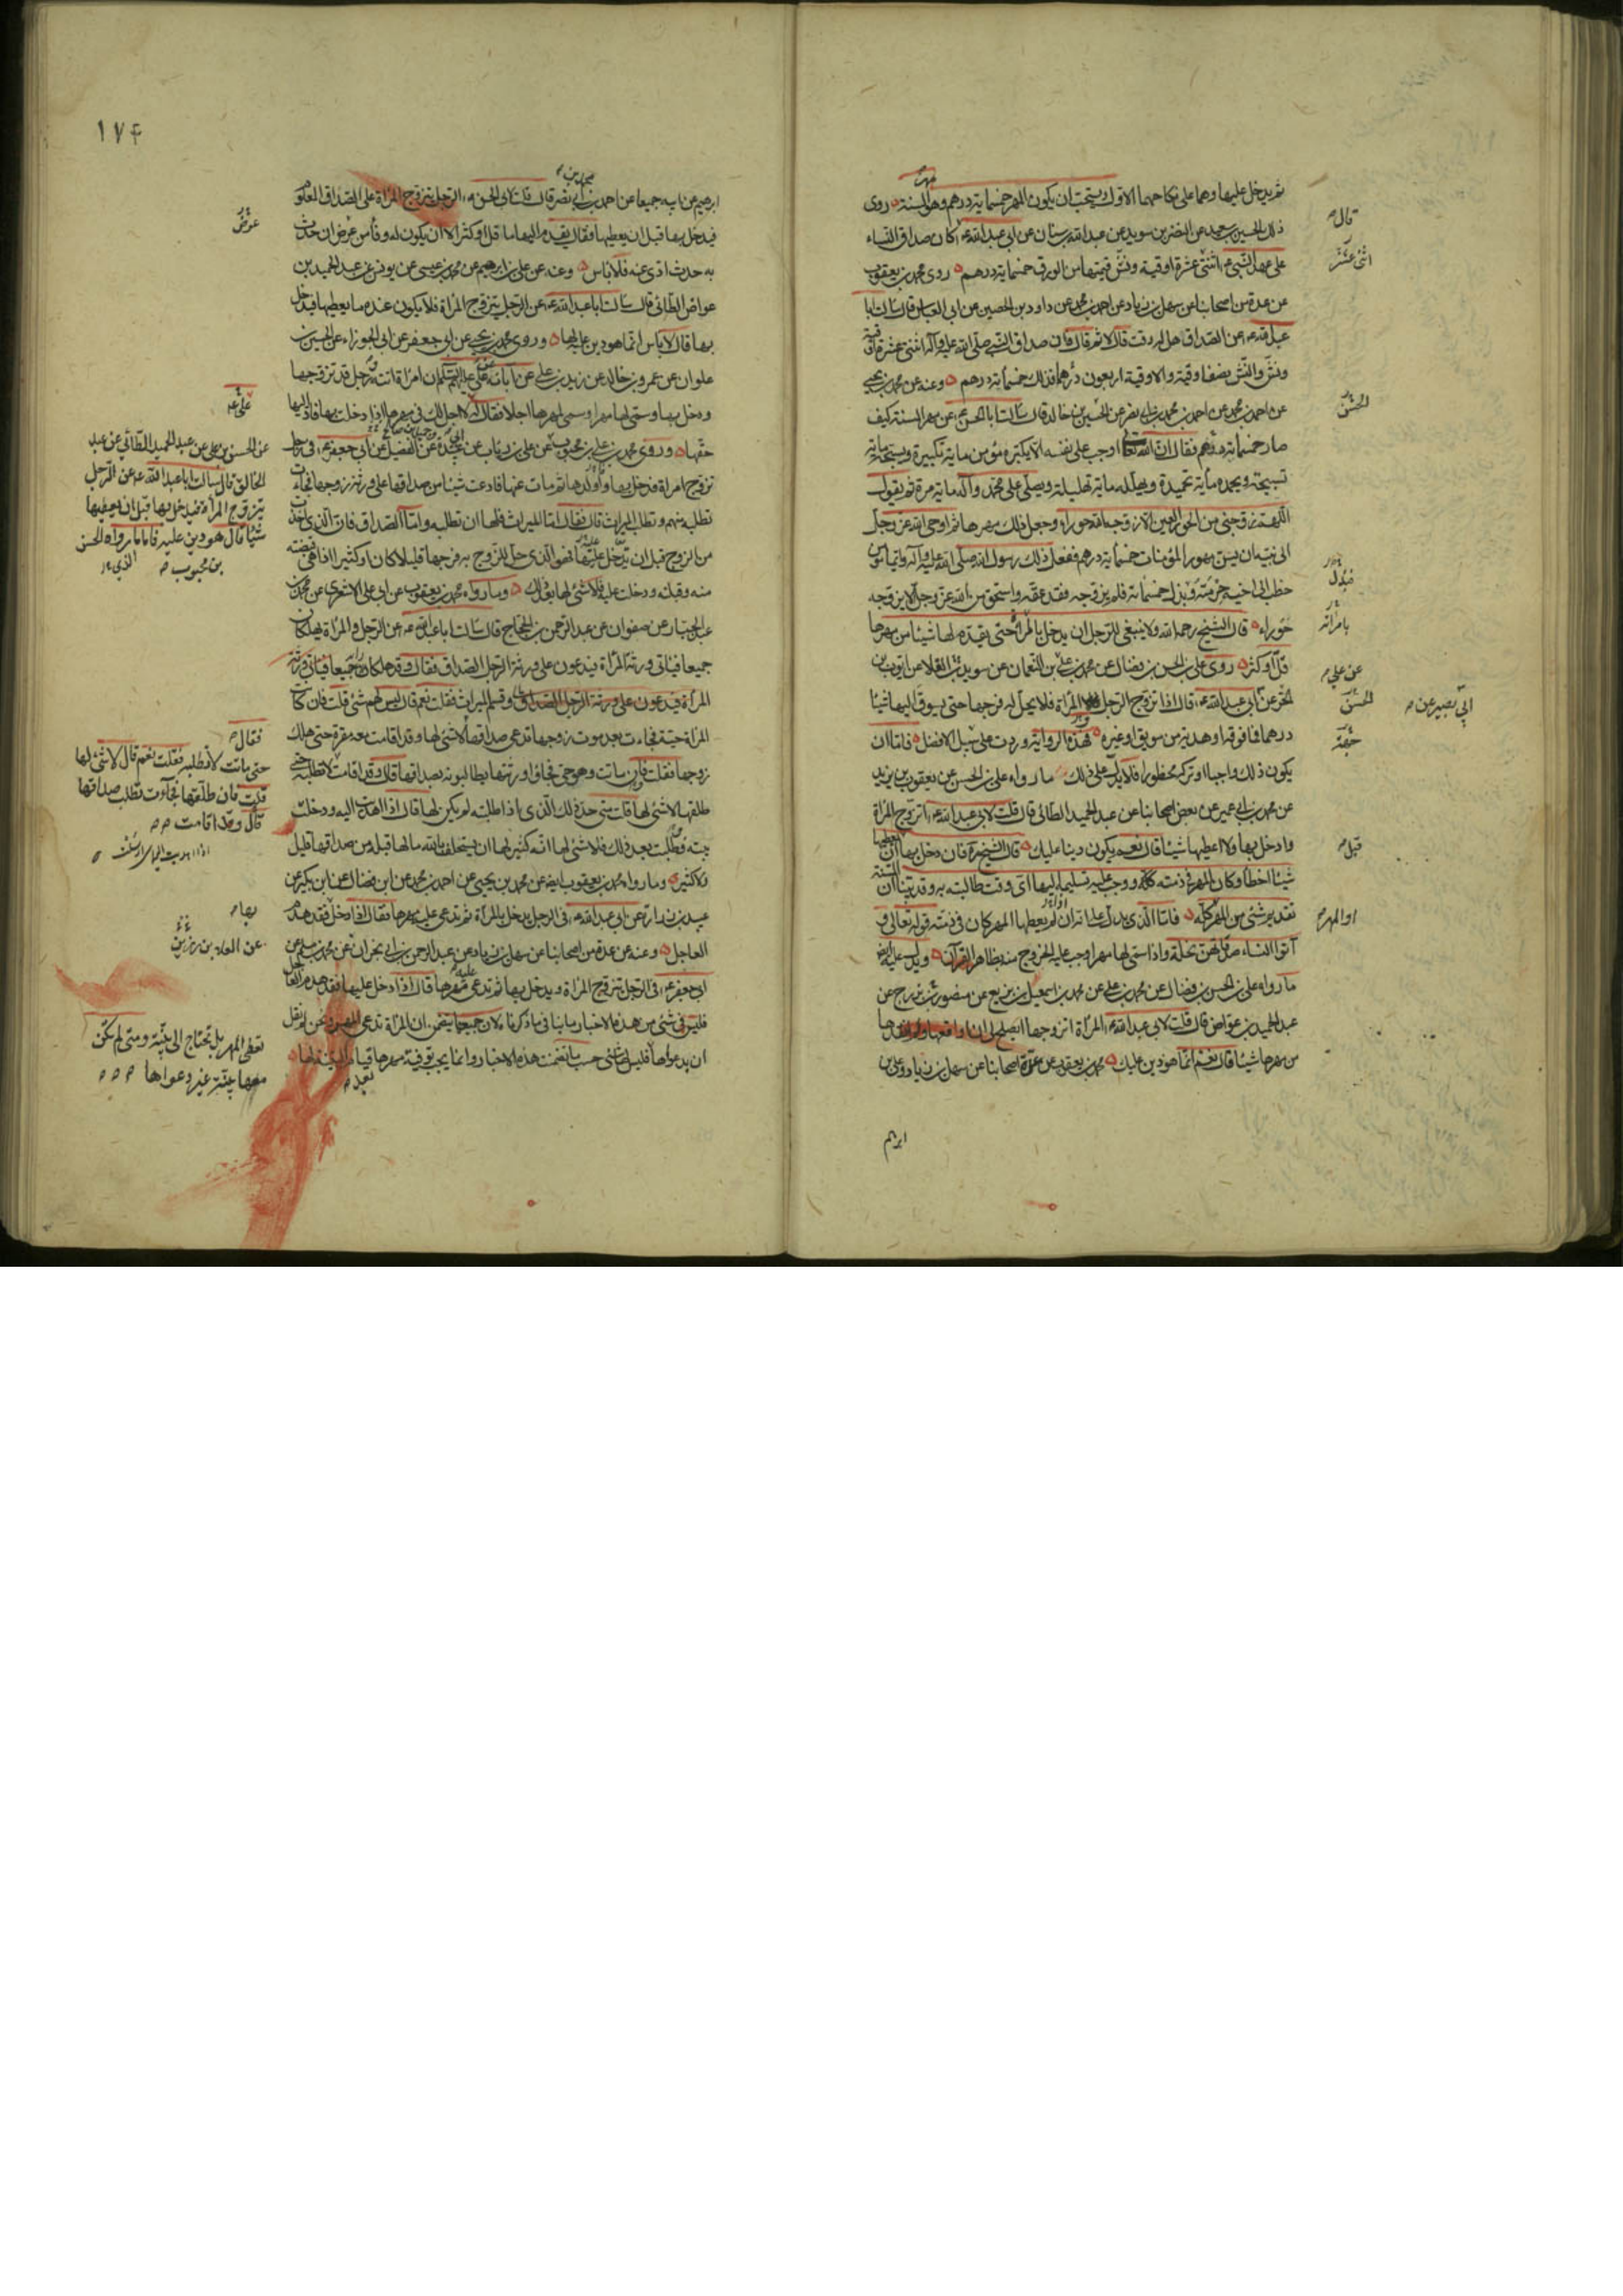 ثم يدخل عليها وهما على نكاحهما الاول ويستحب ان يكون المهر خمسماية درهم وهو السنة روى
ذلك الحسين بن سعيد عن النضر بن سويد عن عبد الله بن سنان عن ابى عبد الله ع كان صداق النساء
على عهد النبى ع اثنتى عشرة اوقية ونش قيمتها من الورق خمسماية درهم روى محمد بن يعقوب
عن عدة من اصحابنا عن سهل بن زياد عن احمد بن محمد عن داود بن الحصين عن ابى العباس قال سالت ابا
عبد الله ع عن الصداق هل له وقت قال لا ثم قال كان صداق النبى صلى الله عليه وآله اثنتى عشرة اوقية
ونش والنش نصف اوقية والاوقية اربعون درهما فذلك خمسماية درهم وعنه عن محمد بن يحيى
عن احمد بن محمد عن احمد بن محمد بن ابى نصر عن الحسين بن خالد قال سالت ابا الحسن ع عن مهر السنة كيف
صار خمسماية درهم فقال ان الله تعالى اوجب على نفسه الا يكبره مؤمن ماية تكبيرة ويسبحه ماية
تسبيحة ويحمده ماية تحميدة ويهلله ماية تهليلة ويصلى على محمد وآله ماية مرة ثم يقول
اللهم زوجنى من الحور العين الا زوجه الله حوراء وجعل ذلك مهرها ثم اوحى الله عز وجل
الى نبيه ان يسن مهور المؤمنات خمسماية درهم ففعل ذلك رسول الله صلى الله عليه وآله وايما مؤمن
خطب الى اخيه حرمته وبذل خمسماية فلم يزوجه فقد عقه واستحق من الله عز وجل الا يزوجه
حوراء قال الشيخ رحمه الله ولا ينبغى للرجل ان يدخل بامراة حتى يقدم لها شيئا من مهرها
قل او كثر روى على بن الحسن بن فضال عن محمد بن على بن النعمان عن سويد القلا عن ايوب بن
الحر عن ابى عبد الله ع قال اذا تزوج الرجل المراة فلا يحل له فرجها حتى يسوق اليها شيئا
درهما فما فوقه او هدية من سويق او غيره فهذه الرواية وردت على سبيل الافضل فاما ان
يكون ذلك واجبا او تركه محظورا فلا يدل على ذلك ما رواه على بن الحسن عن يعقوب بن يزيد
عن محمد بن ابى عمير عن بعض اصحابنا عن عبد الحميد الطائى قال قلت لابى عبد الله ع اتزوج المراة
وادخل بها ولا اعطيها شيئا قال نعم يكون دينا عليك قال الشيخ ره فان دخل بها
شيئا اخطا وكان المهر فى ذمته ووجب عليه تسليمه اليها اى وقت طالبته به وقد بينا ان السنة
تقديم شئ من المهر كله فاما الذى يدل على انه لم يعطها المهر كان فى ذمته قوله تعالى و
آتوا النساء صدقاتهن نحلة واذا سمى لها مهرا وجب عليه الخروج منه بظاهر القرآن ويدل عليه ايضا
ما رواه على بن الحسن بن فضال عن محمد بن على عن محمد بن اسمعيل بن بزيع عن منصور بن بزرج عن
عبد الحميد بن عواض قال قلت لابى عبد الله ع المراة اتزوجها ايصلح لى ان اواقعها ولم انقدها
من مهرها شيئا قال نعم انما هو دين عليك محمد بن يعقوب عن عدة اصحابنا عن سهل بن زياد وعلى بن
ابرهيم
قال
اثنى عشر
الحسن
بامراة
عن على
الحسن
ابى بصير عن
قبل
او المهر
١٧٤
ابرهيم عن ابيه جميعا عن احمد بن محمد بن ابى نصر قال قلت لابى الحسن ع الرجل يتزوج المراة على الصداق المعلوم
فيدخل بها قبل ان يعطيها فقال يقدم اليها ما قل او كثر الا ان يكون له وفاء من عرض ان حدث
به حدث ادى عنه فلا باس وعنه عن على بن ابرهيم عن محمد بن عيسى عن يونس عن عبد الحميد بن
عواض الطائى قال سالت ابا عبد الله ع عن الرجل يتزوج المراة فلا يكون عنده ما يعطيها فيدخل
بها قال لا باس انما هو دين عليه لها وروى محمد بن يحيى عن ابى جعفر عن ابى الجوزاء عن الحسين بن
علوان عن عمرو بن خالد عن زيد بن على عن آبائه عن على عليهم السلام ان امراة اتته ورجل قد تزوجها
ودخل بها وسمى لها مهرا وسمى لمهرها اجلا فقال له لا اجل لك فى مهرها اذا دخلت بها فاد اليها
حقها وروى محمد بن على بن محبوب عن على بن رئاب عن ابى عبيدة عن الفضيل عن ابى جعفر ع فى رجل
تزوج امراة فدخل بها واولدها ثم مات عنها فادعت شيئا من صداقها على ورثة زوجها فجاءت
تطلبه منهم وتطلب الميراث قال فقال اما الميراث فلها ان تطلبه واما الصداق فان الذى اخذت
من الزوج قبل ان يدخل عليها فهو الذى حل للزوج به فرجها قليلا كان او كثيرا اذا هى قبضته
منه وقبلته ودخلت عليه فلا شئ لها بعد ذلك وما رواه محمد بن يعقوب عن ابى على الاشعرى عن محمد بن
عبد الجبار عن صفوان عن عبد الرحمن بن الحجاج قال سالت ابا عبد الله ع عن الرجل والمراة يهلكان
جميعا فياتى ورثة المراة فيدعون على ورثة الرجل الصداق فقال وقد هلكا جميعا فياتى ورثة
المراة فيدعون على ورثة الرجل الصداق وقسم الميراث فقلت نعم قال ليس لهم شئ قلت فان كانت
المراة حية فجاءت بعد موت زوجها تدعى صداقها قال لا شئ لها وقد اقامت معه مقرة حتى هلك
زوجها فقلت فان ماتت وهو حى فجاؤا ورثتها يطالبونه بصداقها قال وقد اقامت لا تطلبه حتى
طلقها لا شئ لها قلت متى حد ذلك الذى اذا طلبته لم يكن لها قال اذا اهديت اليه ودخلت
بيته وطلبت بعد ذلك فلا شئ لها انه كثير لها ان يستحلف بالله ما لها قبله من صداقها قليل
ولا كثير وما رواه محمد بن يعقوب ايضا عن محمد بن يحيى عن احمد بن محمد عن ابن فضال عن ابن بكير عن
عبيد بن زرارة عن ابى عبد الله ع فى الرجل يدخل بالمراة ثم تدعى عليه مهرها فقال اذا دخل فقد هدم
العاجل وعنه عن عدة من اصحابنا عن سهل بن زياد عن عبد الرحمن بن ابى نجران عن محمد بن مسلم عن
ابى جعفر ع فى الرجل يتزوج المراة ويدخل بها ثم تدعى عليه مهرها قال اذا دخل عليها فقد هدم العاجل
فليس فى شئ من هذه الاخبار ما ينافى ما ذكرناه لان جميعها يتضمن ان المراة تدعى المهر ونحن لم نقل
ان بدعواها فليس لها شئ حسب ما تضمنت هذه الاخبار وانما يجب توفية مهرها قيام البينة لها
بعد
عوض
على ع
عن الحسن بن على عن عبد الحميد الطائى عن عبد
الخالق قال سالت ابا عبد الله ع عن الرجل
يتزوج المراة فيدخل بها قبل ان يعطيها
شيئا قال هو دين عليه فاما ما رواه الحسن
بن محبوب
فقال
حتى ماتت لا تطلبه فقلت نعم قال لا شئ لها
قلت فان طلقها فجاءت تطلب صداقها
قال وقد اقامت
بها
عن العلاء بن رزين
تعطى المهر بل تحتاج الى بينة ومتى لم تكن
معها بينة غير دعواها